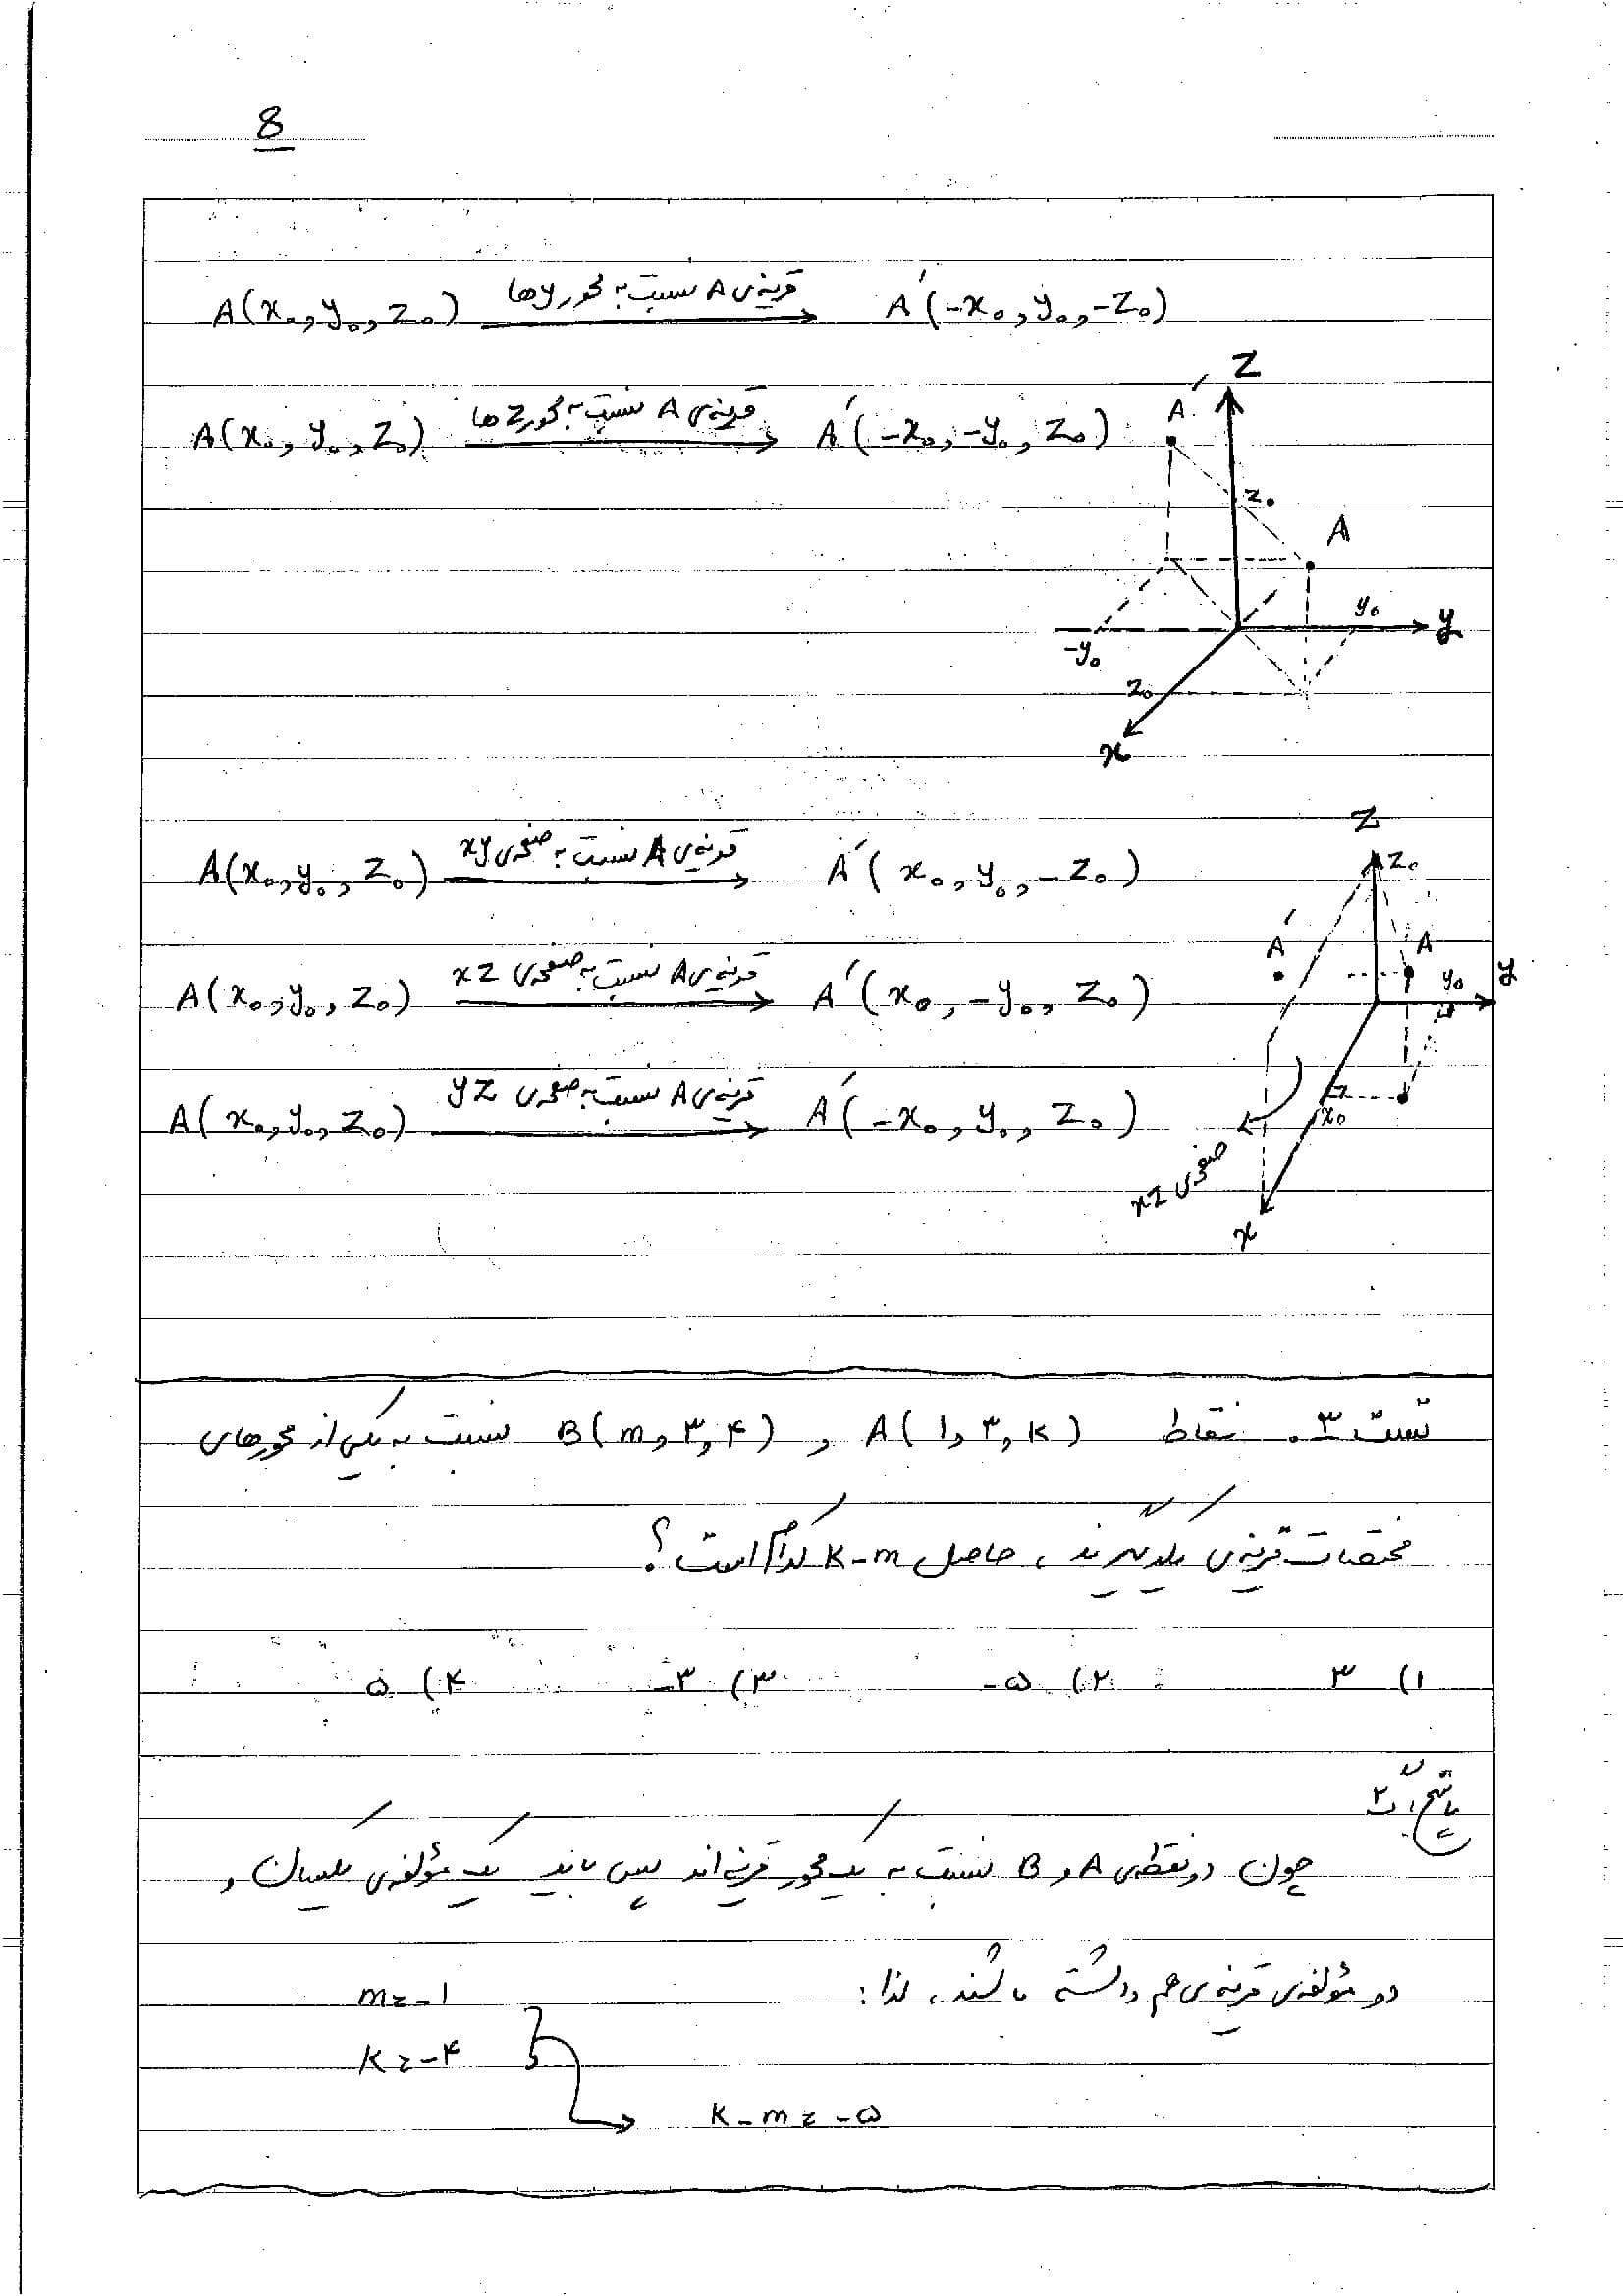 8
A(x₀, y₀, z₀) قرینه‌ی A نسبت به محور y ها A′(-x₀, y₀, -z₀)
A(x₀, y₀, z₀) قرینه‌ی A نسبت به محور z ها A′(-x₀, -y₀, z₀)
Z
A′
z₀
A
y₀
y
-y₀
z₀
x
A(x₀, y₀, z₀) قرینه‌ی A نسبت به صفحه‌ی xy A′(x₀, y₀, -z₀)
A(x₀, y₀, z₀) قرینه‌ی A نسبت به صفحه‌ی xz A′(x₀, -y₀, z₀)
A(x₀, y₀, z₀) قرینه‌ی A نسبت به صفحه‌ی yz A′(-x₀, y₀, z₀)
Z
z₀
A′
A
y₀
y
x₀
صفحه‌ی xz
x
تست ۳. نقاط A(۱, ۳, k) و B(m, ۳, ۴) نسبت به یکی از محورهای
مختصات قرینه‌ی یکدیگرند، حاصل k-m کدام است؟
۱) ۳ ۲) -۵ ۳) -۳ ۴) ۵
پاسخ: ۲
چون دو نقطه‌ی A و B نسبت به یک محور قرینه‌اند پس باید یک مؤلفه‌ی یکسان و
دو مؤلفه‌ی قرینه‌ی هم داشته باشند، لذا:
m=-۱
k=-۴
k-m=-۵